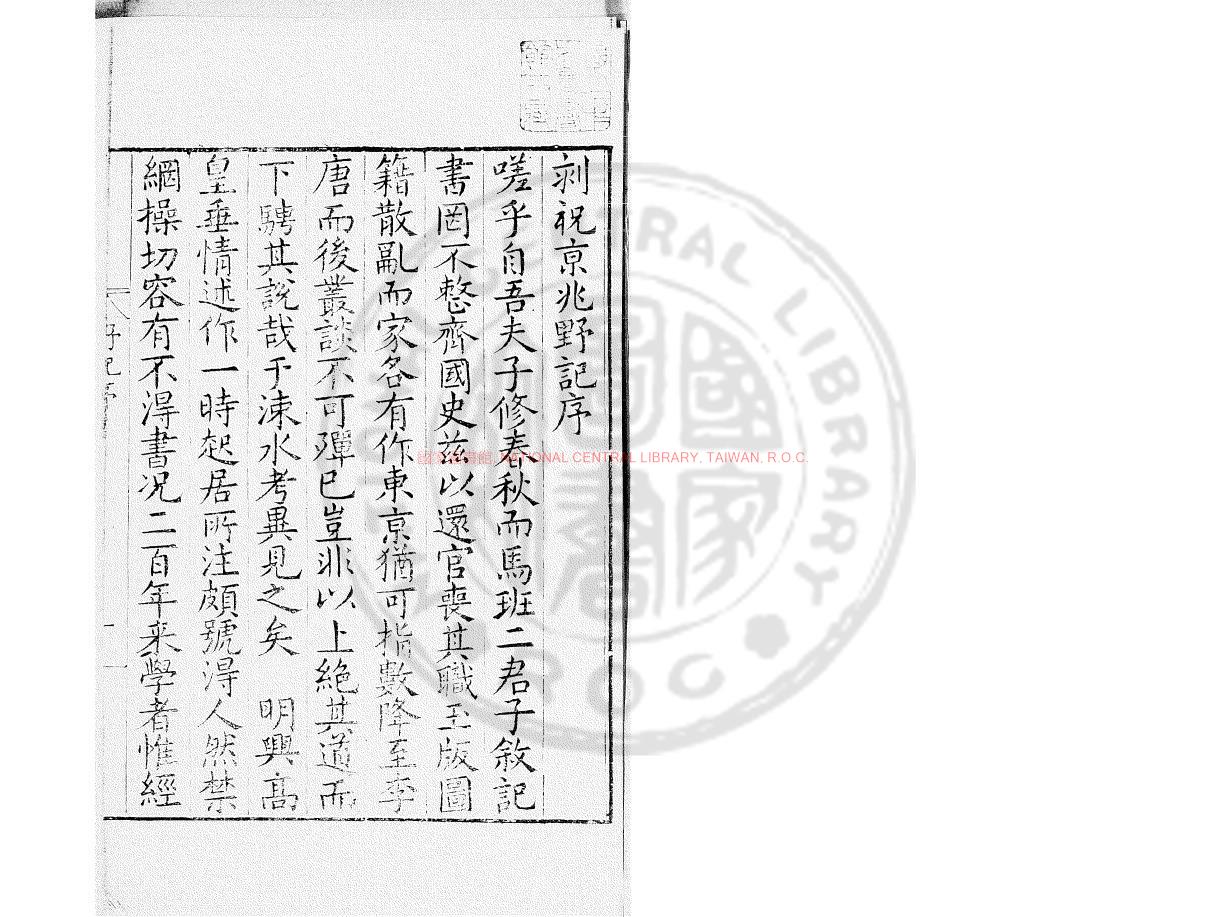 刻祝京兆野記序
嗟乎自吾夫子修春秋而馬班二君子敘記
書罔不整齊國史茲以還官喪其職玉版圖
籍散亂而家各有作東京猶可指數降至李
唐而後叢談不可殫已豈非以上絕其道而
下騁其說哉于涑水考異見之矣 明興高
皇垂情述作一時起居所注頗號得人然禁
網操切容有不得書况二百年来學者惟經
國家圖書館, NATIONAL CENTRAL LIBRARY, TAIWAN, R.O.C.